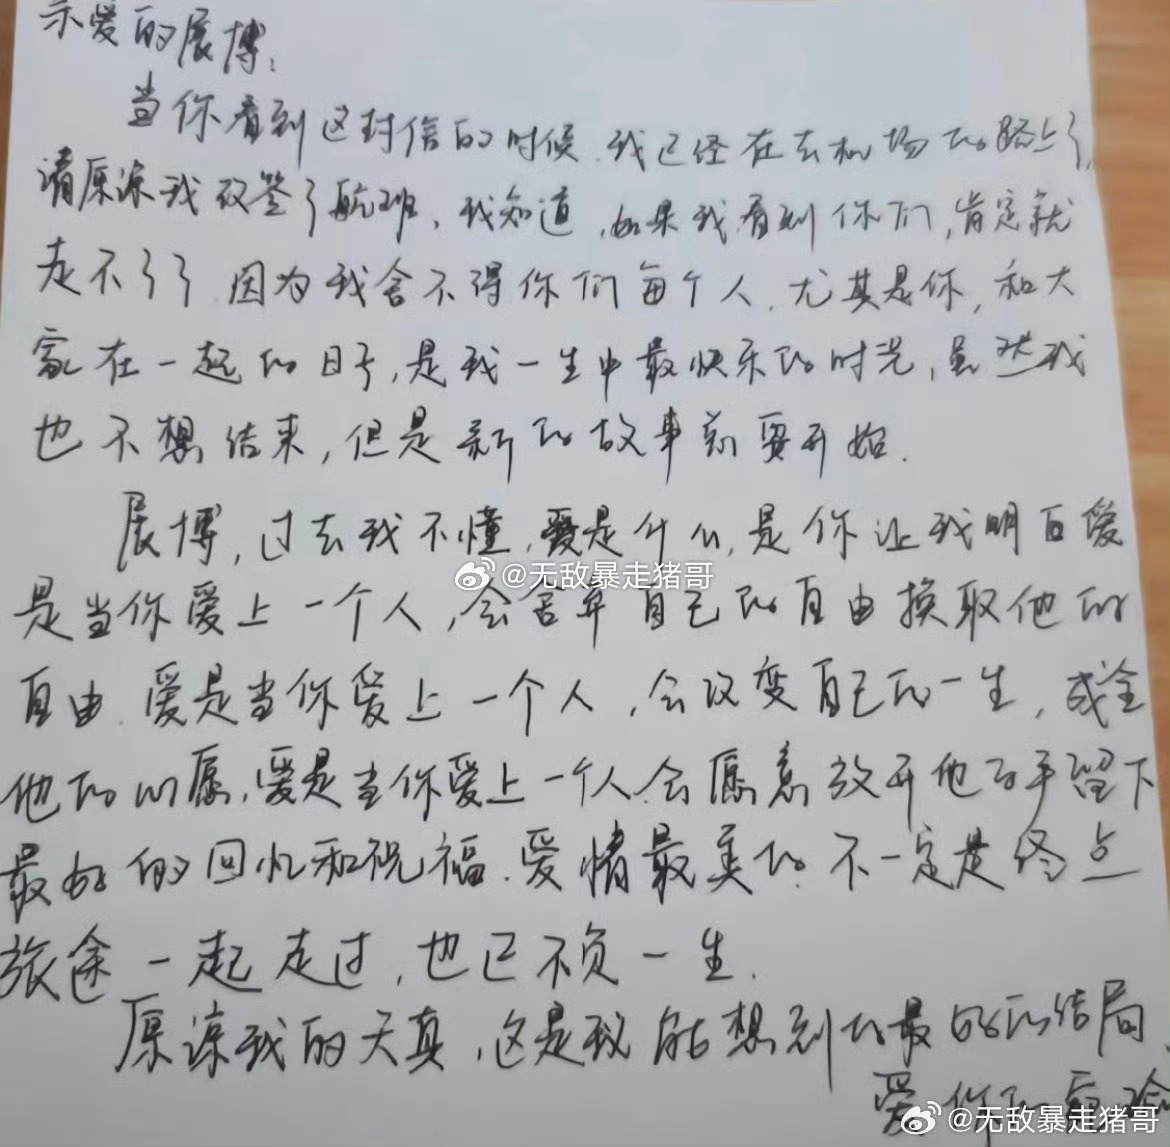 亲爱的展博:
当你看到这封信的时候.我已经在去机场的路上了,
请原谅我改签了航班、我知道,如果我看到你们,肯定就
走不了了.因为我舍不得你们每个人.尤其是你,和大
家在一起的日子,是我一生中最快乐的时光,虽然我
也不想结束,但是新的故事总要开始.
展博,过去我不懂,爱是什么,是你让我明白爱
是当你爱上一个人,会舍弃自己的自由换取他的
自由.爱是当你爱上一个人,会改变自己的一生,成全
他的心愿.爱是当你爱上一个人.会愿意放开他的手留下
最好的回忆和祝福.爱情最美的.不一定是终点
旅途一起走过,也已不负一生.
原谅我的天真、这是我能想到的最好的结局、
爱你的宛瑜
@无敌暴走猪哥
@无敌暴走猪哥